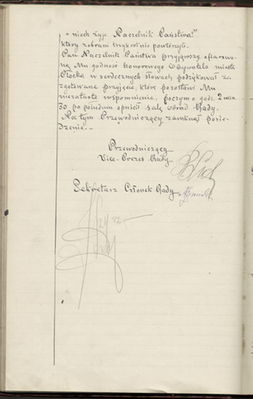 "niech żyje Naczelnik Państwa!"
który zebrani trzykrotnie powtórzyli.
Pan Naczelnik Państwa przyjąwszy ofiarowa-
ną Mu godność honorowego Obywatela miasta
Płocka w serdecznych słowach podziękował za
zgotowane przyjęcie, które pozostawi Mu
niezatarte wspomnienie, poczem o godz. 2 min
30 po południu opuścił salę obrad Rady.
Na tym Przewodniczący zamknął posie-
dzenie.-
Przewodniczący
Vice-Prezes Rady
Sekretarz Członek Rady